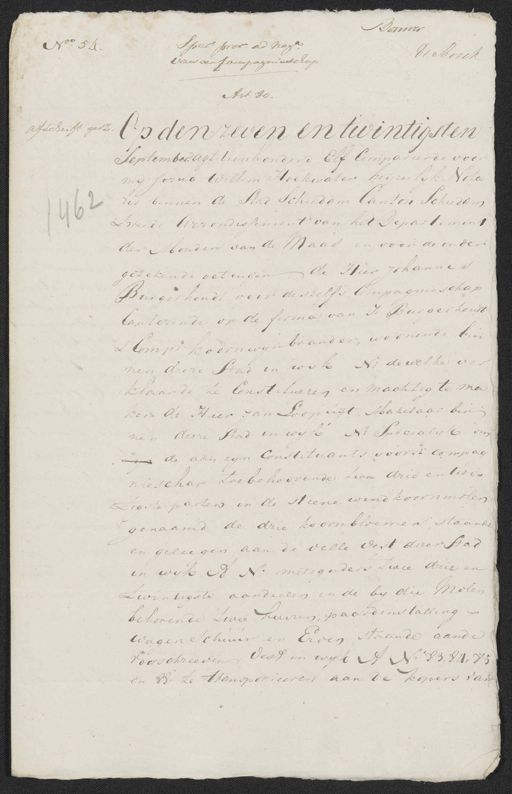 No 54.
Spec. proc. ad neg.
van een Compagnieschap
Art. 20.
afschrift geëx.
1462
Op den zeven en twintigsten
September agttienhonderd Elf Compareerde voor
my Willem Hoekwater keyzerlyk Nota
ris binnen de Stad Schiedam Canton Schiedam
tweede Arrondissement van het Departement
der Monden van de Maas en voor de onder
getekende getuigen de Heer Johannes
Burgerhoudt voor deszelfs Compagnieschap
Canterende op de firma van J. Burgerhoudt
& Comp. koornwynbranders, woonende bin
nen deeze Stad in wyk No dewelke ver
klaarde te Constitueren en machtig te ma
ken de Heer Jan Makelaar bin
nen deeze Stad in wyk No Speciaalyk om
de aan zyn Constituants voorsz. compag
nieschap toebehoorende twee drie en twin
tigste parten in de steene windkoornmolen
genaamd de drie koornbloemen, staande
en gelegen aan de Vest deezer Stad
in wyk A No mitsgaders twee drie en
twintigste aandeelen in de by die Molen
behorende twee huizen, paardenstalling
wagen Schuur en Erven staande aan de
voorschreeven Vest in wyk A No 83. 84. 
en te transporteeren aan de kopers van